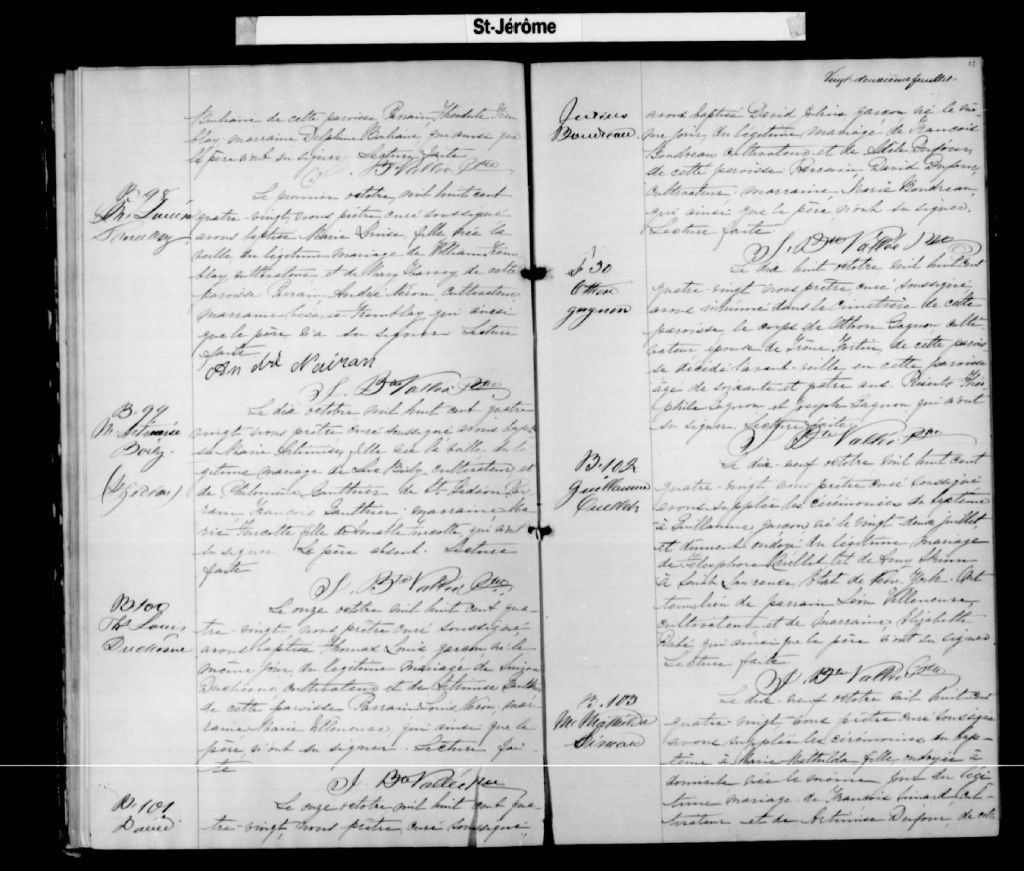 St-Jérôme
de cette paroisse Parrain Théodule Trem
blay marraine Delphine qui ainsi que
le père n'ont su signer. Lecture faite
J. Bte Vallée Ptre
B. 98
Me Louise
Tremblay
Le premier octobre, mil huit cent
quatre-vingt, nous prêtre curé soussigné
avons baptisé Marie Louise, fille née la
veille du légitime mariage de William Trem
blay, cultivateur et de Mary Harvey de cette
paroisse Parrain André Néron cultivateur
marraine Tremblay, qui ainsi
que le père n'a su signer Lecture
faite
André Nairan
J. Bte Vallée Ptre
B. 99
M. Artémise
Boily
(St Gédéon)
Le dix octobre mil huit cent quatre
vingt nous prêtre curé soussigné avons bapti-
sé Marie Artémise, fille née la veille du lé
gitime mariage de Luc Boily, cultivateur et
de Philomène Gauthier de St Gédéon. Par
rain François Gauthier marraine Ma
rie Turcotte fille d'Amable Turcotte, qui n'ont
su signer. Le père absent. Lecture
faite
J. Bte Vallée Ptre
B. 100
Ths Louis
Duchesne
Le onze octobre mil huit cent qua
tre-vingt, nous prêtre curé soussigné,
avons baptisé Thomas Louis garçon né le
même jour, du légitime mariage de
Duchesne, cultivateur et de Artémise
de cette paroisse Parrain Louis Néron, mar
raine Marie Villeneuve, qui ainsi que le
père, n'ont su signer. Lecture fai-
te
J. Bte Vallée Ptre
B. 101
David
Le onze octobre mil huit cent qua
tre-vingt, nous prêtre, curé soussigné,
Vingt deuxième feuillet
Boudreau
avons baptisé David garçon né le mê
me jour, du légitime mariage de François
Boudreau cultivateur et de Adèle Dufour,
de cette paroisse Parrain David Dufour,
cultivateur, marraine Marie Boudreau,
qui ainsi que le père n'ont su signer.
Lecture faite.
J. Bte Vallée Ptre
S 30
Othon
Gagnon
Le dix huit octobre mil huit cent
quatre-vingt nous prêtre curé soussigné
avons inhumé dans le cimetière de cette
paroisse, le corps de Othon Gagnon culti-
vateur, époux de Irène Fortin, de cette parois
se décédé l'avant-veille en cette paroisse
âgé de soixante et quatre ans. Présents Théo
phile Gagnon et Joseph Gagnon qui n'ont
su signer. Lecture faite
J. Bte Vallée Ptre
B. 102
Guillaume
Ouellet
Le dix-neuf octobre mil huit cent
quatre-vingt nous prêtre curé soussigné
avons suppléé les cérémonies du baptême
à Guillaume garçon né le vingt deux juillet
et dûment ondoyé du légitime mariage
de Télesphore Ouellet et de Skinn
à Saint Lawrence, Etat de New York. Ont
tenu lieu de parrain Léon Villeneuve,
cultivateur et de marraine Elizabeth
qui ainsi que le père n'ont su signer.
Lecture faite
J. Bte Vallée Ptre
B. 103
Me Mathilda
Simard
Le dix-neuf octobre mil huit cent
quatre vingt nous prêtre curé soussigné
avons suppléé les cérémonies du bap
tême à Marie Mathilda fille, ondoyée à
domicile née le même jour du légi
time mariage de François Simard, cul-
tivateur et de Artémise Dufour, de cette